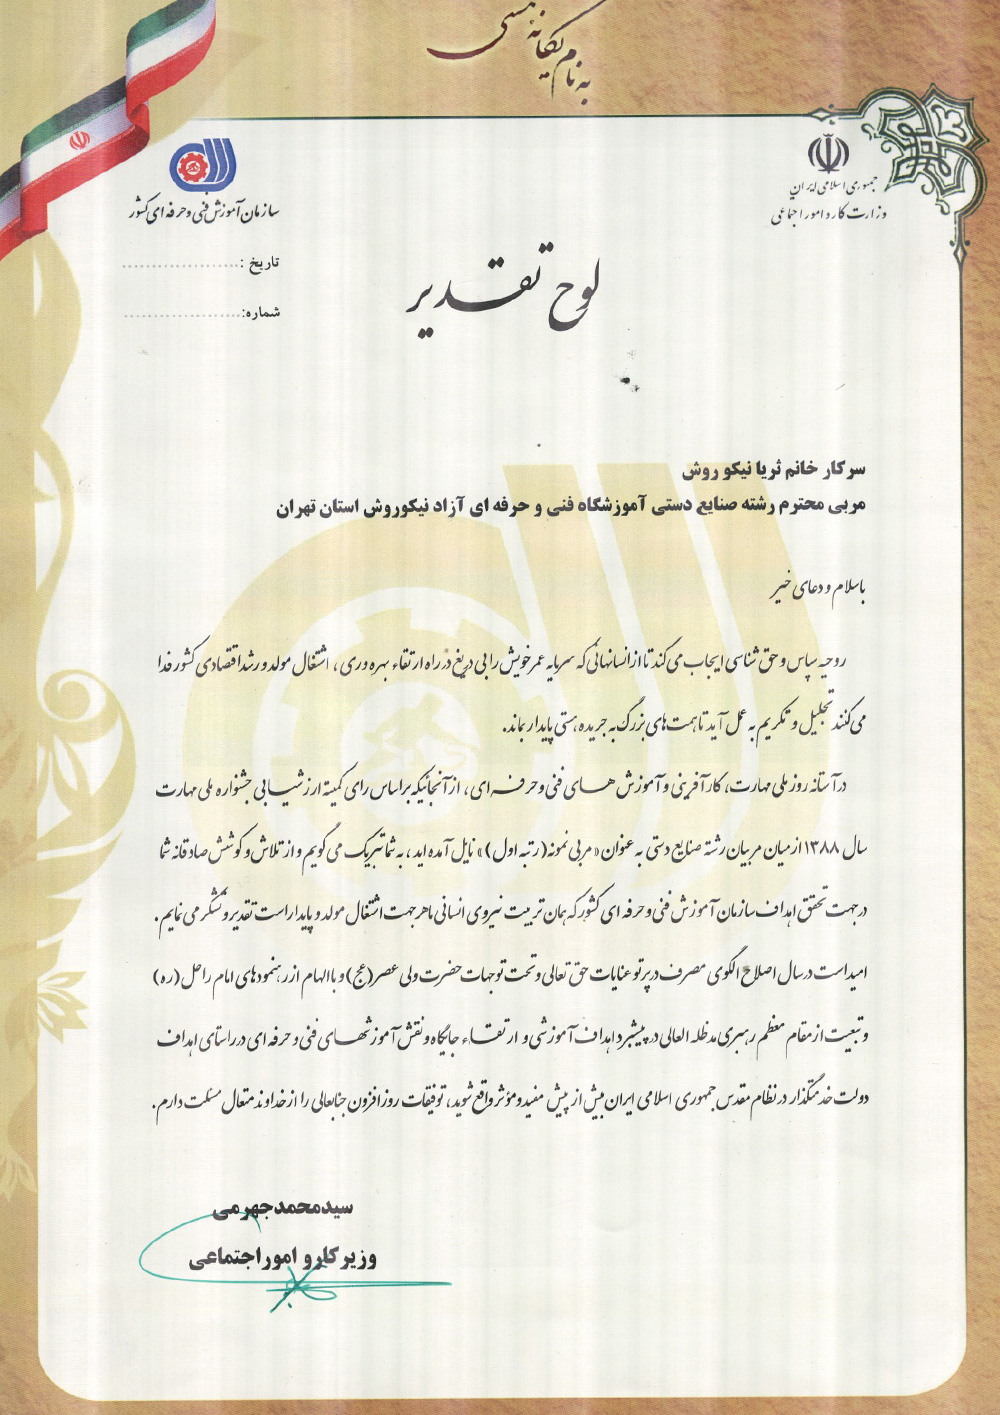 به نام یگانه هستی
جمهوری اسلامی ایران
وزارت کار و امور اجتماعی
سازمان آموزش فنی و حرفه ای کشور
تاریخ :....................
شماره:....................
لوح تقدیر
سرکار خانم ثریا نیکو روش
مربی محترم رشته صنایع دستی آموزشگاه فنی و حرفه ای آزاد نیکوروش استان تهران
باسلام و دعای خیر
روحیه سپاس و حق شناسی ایجاب می کند تا از انسانهائی که سرمایه عمر خویش را بی دریغ در راه ارتقاء بهره وری ، اشتغال مولد و رشد اقتصادی کشور فدا
می کنند تجلیل و تکریم به عمل آید تا همت های بزرگ به جریده هستی پایدار بماند.
در آستانه روز ملی مهارت، کارآفرینی و آموزش هـای فنی و حرفـه ای ، از آنجائیکه براساس رای کمیته ارزشیابی جشنواره ملی مهارت
سال ۱۳۸۸ از میان مربیان رشته صنایع دستی به عنوان « مربی نمونه( رتبه اول ) » نایل آمده اید ، به شما تبریک می گویم و از تلاش و کوشش صادقانه شما
در جهت تحقق اهداف سازمان آموزش فنی و حرفه ای کشور که همان تربیت نیروی انسانی ماهر جهت اشتغال مولد و پایدار است تقدیر و تشکر می نمایم .
امید است در سال اصلاح الگوی مصرف در پرتو عنایات حق تعالی و تحت توجهات حضرت ولی عصر(عج) و با الهام از رهنمودهای امام راحل (ره)
و تبعیت از مقام معظم رهبری مدظله العالی در پیشبرد اهداف آموزشی و ارتقـاء جایگاه و نقش آموزشهـای فنی و حرفه ای در راستای اهداف
دولت خدمتگذار در نظام مقدس جمهوری اسلامی ایران بیش از پیش مفید و مؤثر واقع شوید، توفیقات روز افزون جنابعالی را از خداوند متعال مسئلت دارم.
سیدمحمدجهرمی
وزیر کار و امور اجتماعی